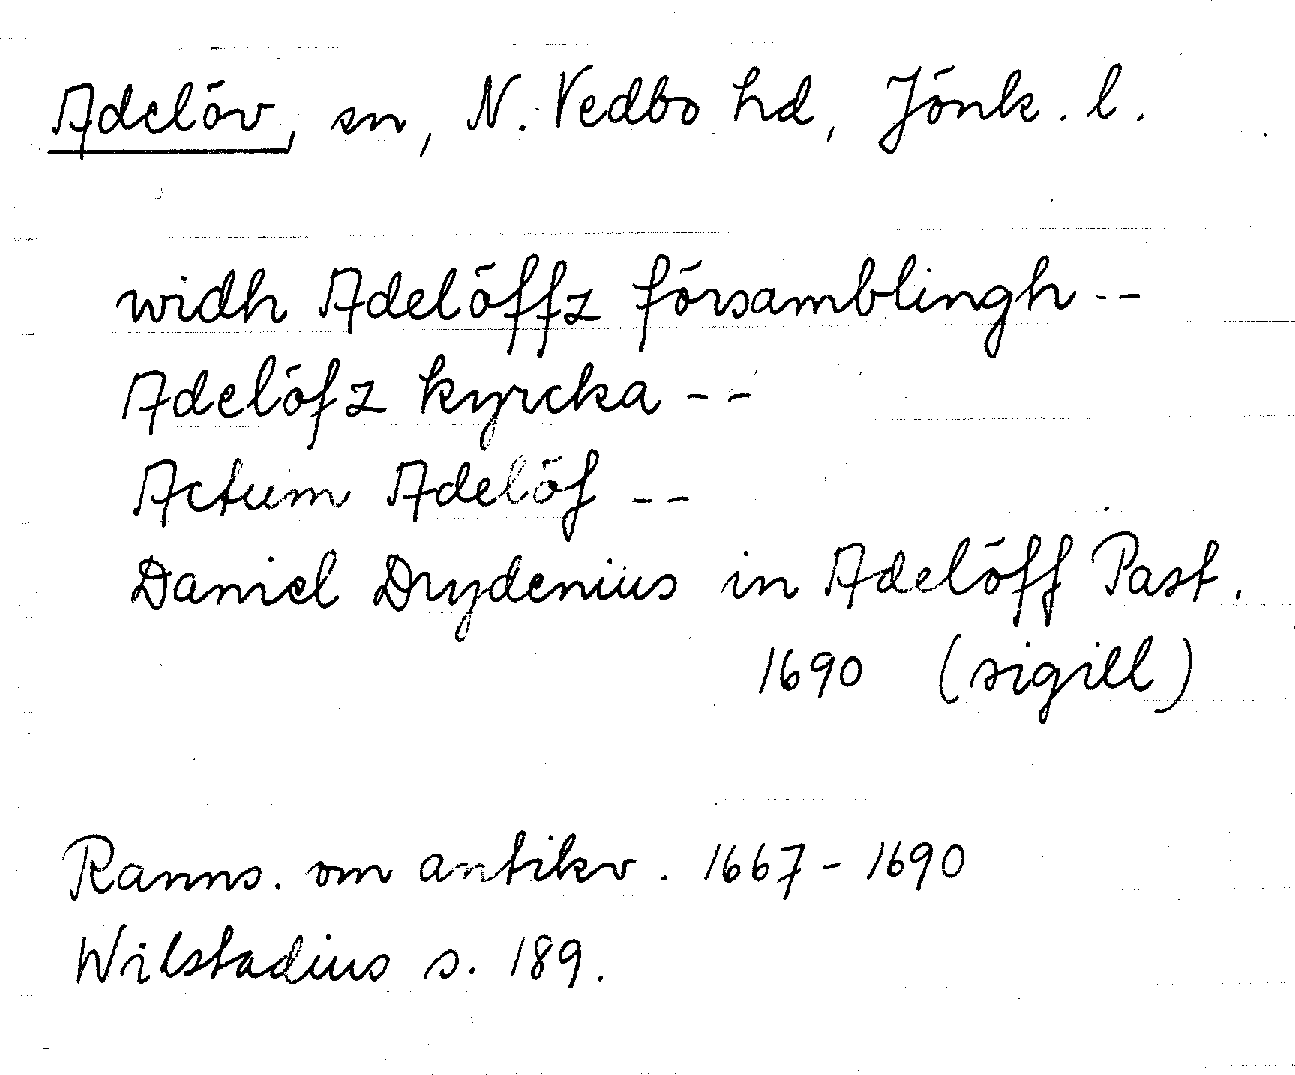 Adelöv, sn, N. Vedbo hd, Jönk. l.
widh Adelöffz församblingh --
Adelöfz kyrcka --
Actum Adelöf --
Daniel Drydenius in Adelöff Past.
1690 (sigill)
Ranns. om antikv. 1667-1690
Wilstadius s. 189.